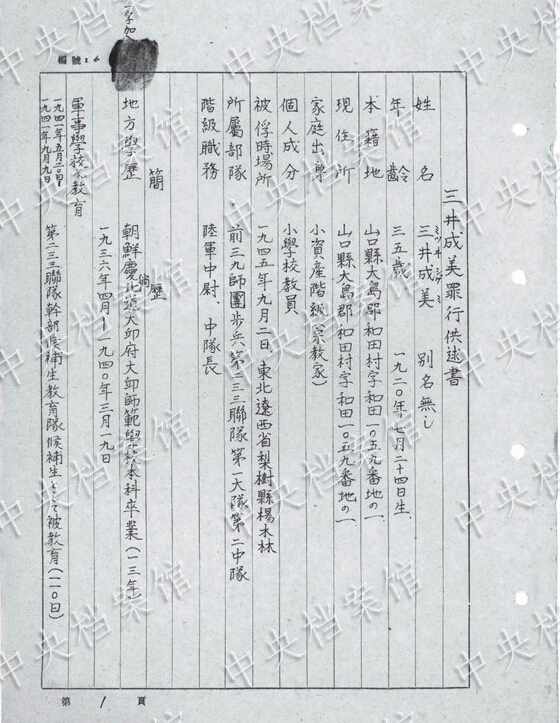 一字加
編號：6
三井成美罪行供述書
姓名　三井成美　別名無し
ミツヰ　シゲミ
年齡　三五歲　一九二〇年七月二十四日生
本籍地　山口縣大島郡和田村字和田一〇五九番地の一
現住所　山口縣大島郡和田村字和田一〇五九番地の一
家庭出身　小資産階級（宗教家）
個人成分　小學校教員
被俘時場所　一九四五年九月二日、東北遼西省梨樹縣楊木林
所屬部隊　前三九師團步兵第二三三聯隊第一大隊第二中隊
階級職務　陸軍中尉、中隊長
簡歷
地方學歷　朝鮮慶北道大邱府大邱師範學校本科卒業（一三年）
尚
一九三六年四月－一九四〇年三月一九日
軍事學校ノ教育
一九四一年五月二〇日－
一九四一年九月九日　第二三三聯隊幹部候補生教育隊候補生として被教育（一一〇日）
第 1 頁
中央档案馆